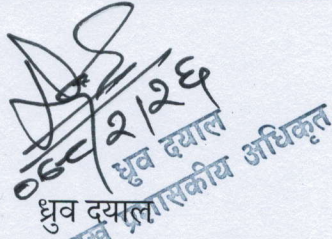 ०६८/२/२६
ध्रुव दयाल
ध्रुव दयाल
प्रशासकीय अधिकृत